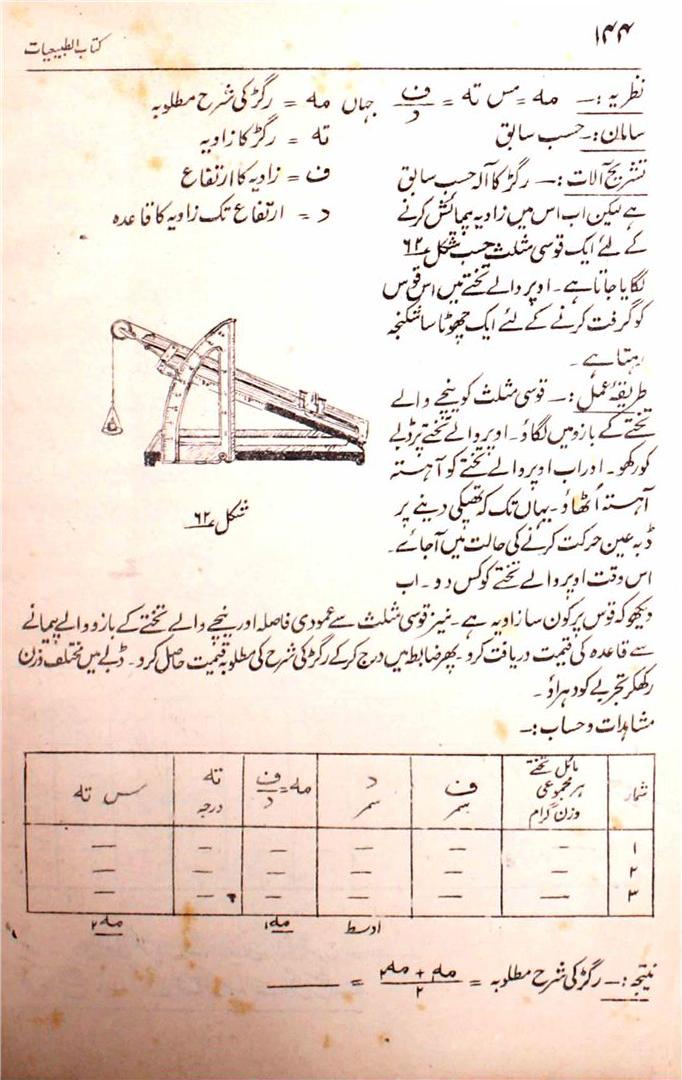 ۱۴۴
کتاب الطبیعیات
نظریہ :— مہ = مس تہ = ف/د جہاں مہ = رگڑ کی شرح مطلوبہ
سامان :— حسب سابق
تہ = رگڑ کا زاویہ
تشریح آلات :— رگڑ کا آلہ حسب سابق
ف = زاویہ کا ارتفاع
ہے لیکن اب اس میں زاویہ پیمائش کرنے
د = ارتفاع تک زاویہ کا قاعدہ
کے لئے ایک قوسی مثلث حسب شکل ۶۲
لگایا جاتا ہے۔ اوپر والے تختے میں اس قوس
کو گرفت کرنے کے لئے ایک چھوٹا سا شکنجہ
رہتا ہے۔
طریقۂ عمل :— قوسی مثلث کو نیچے والے
تختے کے بازو میں لگاؤ۔ اوپر والے تختے پر ڈبے
کو رکھو۔ اور اب اوپر والے تختے کو آہستہ
آہستہ اُٹھاؤ۔ یہاں تک کہ تھپکی دینے پر
ڈبہ عین حرکت کرنے کی حالت میں آجائے۔
اس وقت اوپر والے تختے کو کس دو۔ اب
شکل ۶۲
دیکھو کہ قوس پر کون سا زاویہ ہے۔ نیز قوسی مثلث سے عمودی فاصلہ اور نیچے والے تختے کے بازو والے پیمانے
سے قاعدہ کی قیمت دریافت کرو۔ پھر ضابطہ میں درج کرکے رگڑ کی شرح کی مطلوبہ قیمت حاصل کرو۔ ڈبے میں مختلف وزن
رکھکر تجربے کو دہراؤ۔
مشاہدات و حساب :—
شمار | مائل تختے پر مجموعی وزن گرام | ف سمر | د سمر | مہ = ف/د | تہ درجہ | س تہ
۱ — — — — — —
۲ — — — — — —
۳ — — — — — —
اوسط مہ۱ مہ۲
نتیجہ :— رگڑ کی شرح مطلوبہ = مہ۱ + مہ۲ / ۲ = ———